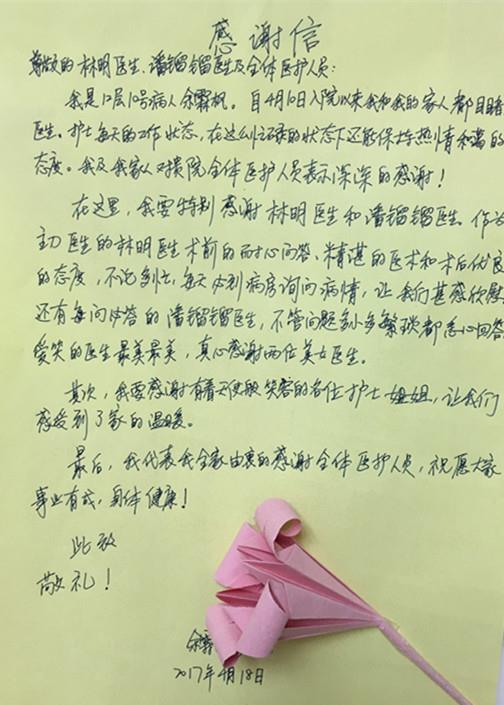 感谢信
尊敬的林明医生、潘镏镏医生及全体医护人员:
我是12层10号病人余霖枫。自4月10日入院以来我和我的家人都目睹
医生。护士每天的工作状态,在这么忙碌的状态下还能保持热情和蔼的
态度。我及我家人对贵院全体医护人员表示深深的感谢!
在这里,我要特别感谢林明医生和潘镏镏医生。作为
主刀医生的林明医生术前的耐心问答、精湛的医术和术后优良
的态度,不论多忙,每天必到病房询问病情,让我们甚感欣慰
还有每问必答的潘镏镏医生,不管问题多小多繁琐都悉心回答
爱笑的医生最美最美,真心感谢两位美女医生。
其次,我要感谢有着天使般笑容的各位护士姐姐,让我们
感受到了家的温暖。
最后,我代表我全家由衷的感谢全体医护人员,祝愿大家
事业有成,身体健康!
此致
敬礼!
余霖
2017年4月18日